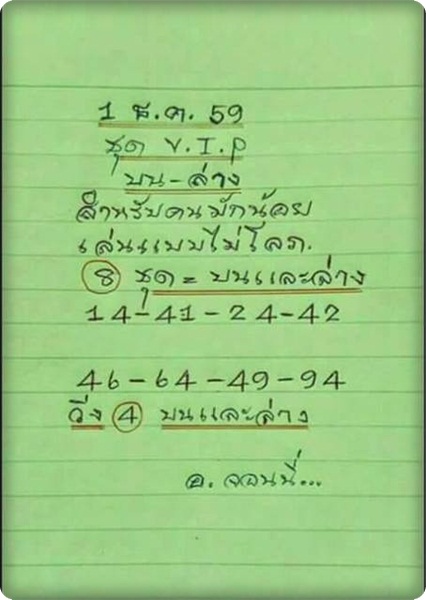 1 ธ.ค. 59
ชุด V.I.P
บน-ล่าง
สำหรับคนมักน้อย
เล่นแบบไม่โลภ.
8 ชุด = บนและล่าง
14-41-24-42
46-64-49-94
วิ่ง 4 บนและล่าง
อ. จอนนี่...